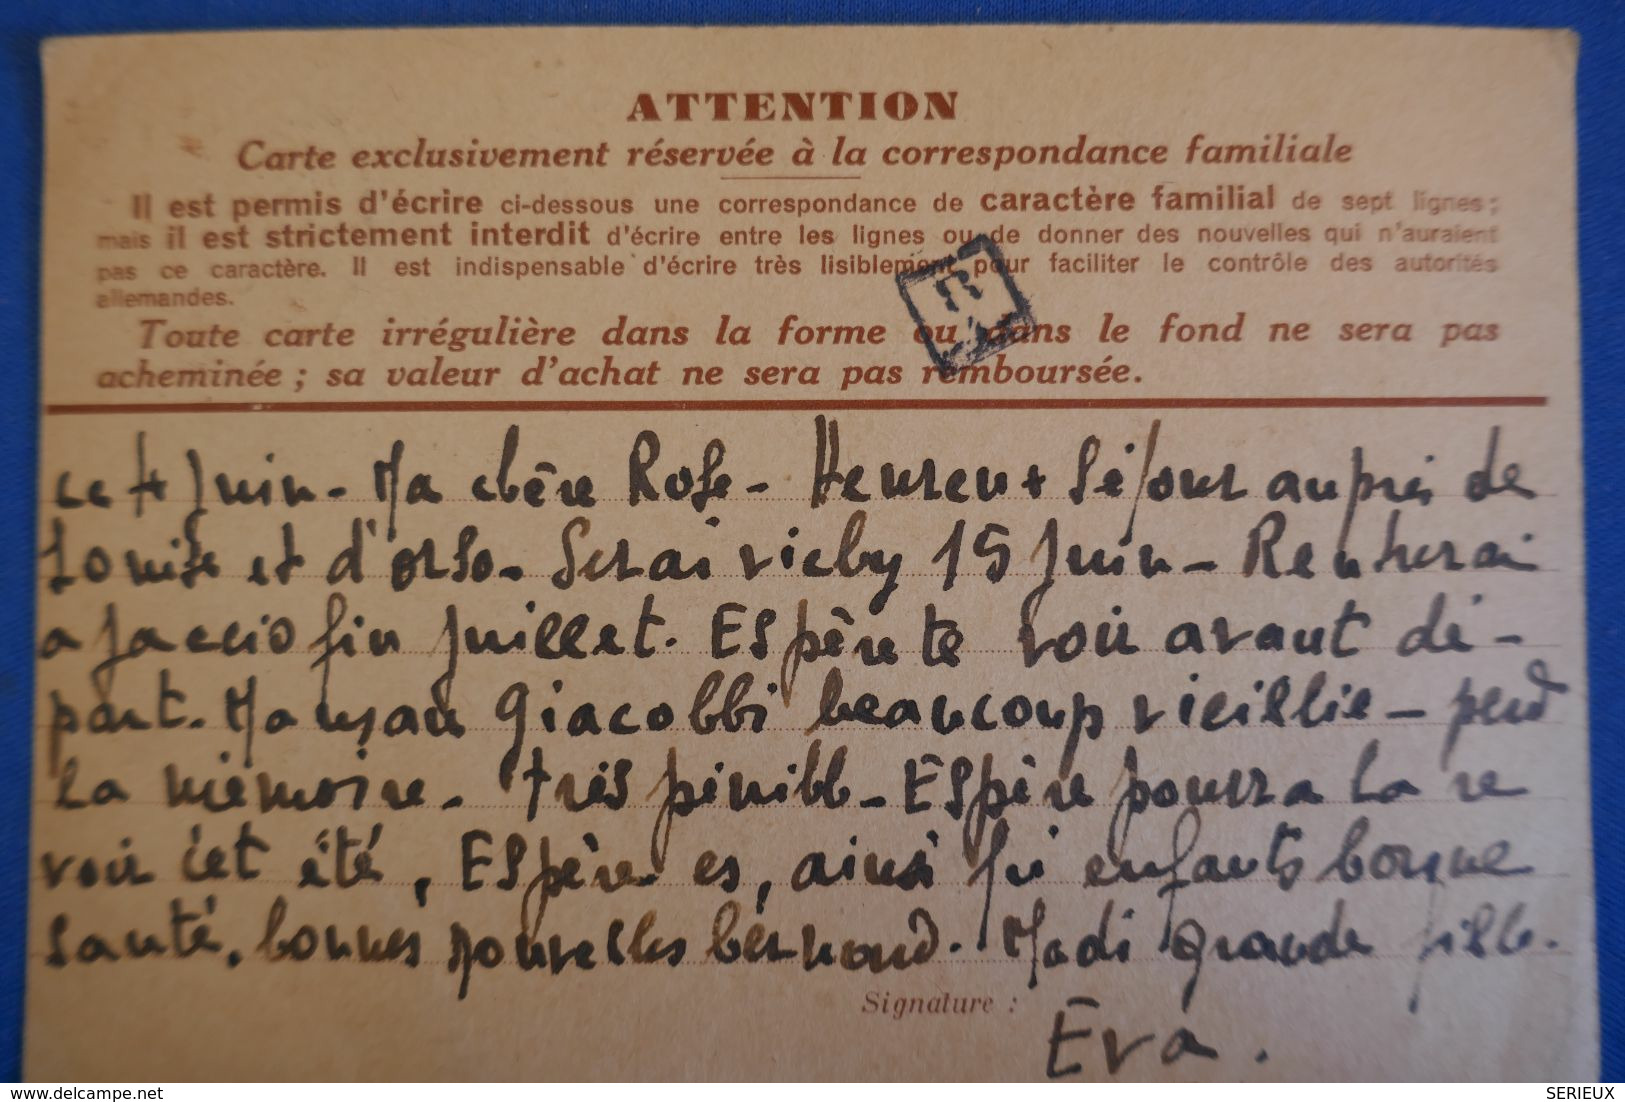 ATTENTION
Carte exclusivement réservée à la correspondance familiale
Il est permis d'écrire ci-dessous une correspondance de caractère familial de sept lignes ;
mais il est strictement interdit d'écrire entre les lignes ou de donner des nouvelles qui n'auraient
pas ce caractère. Il est indispensable d'écrire très lisiblement pour faciliter le contrôle des autorités
allemandes.
Toute carte irrégulière dans la forme ou dans le fond ne sera pas
acheminée ; sa valeur d'achat ne sera pas remboursée.
Ce 4 Juin - Ma chère Rose - Heureux Séjour auprès de
Louise et d'orso. Serai vichy 15 Juin - Rentrerai
ajaccio fin Juillet. Espère te voir avant dé-
part. Giacobbi beaucoup vieillie - perd
la mémoire. très pénible - Espère pourra la re
voir cet été, Espère es, ainsi enfants bonne
santé, bonnes nouvelles bernard. Madi grande fille.
Signature :
Eva.
delcampe.net
SERIEUX